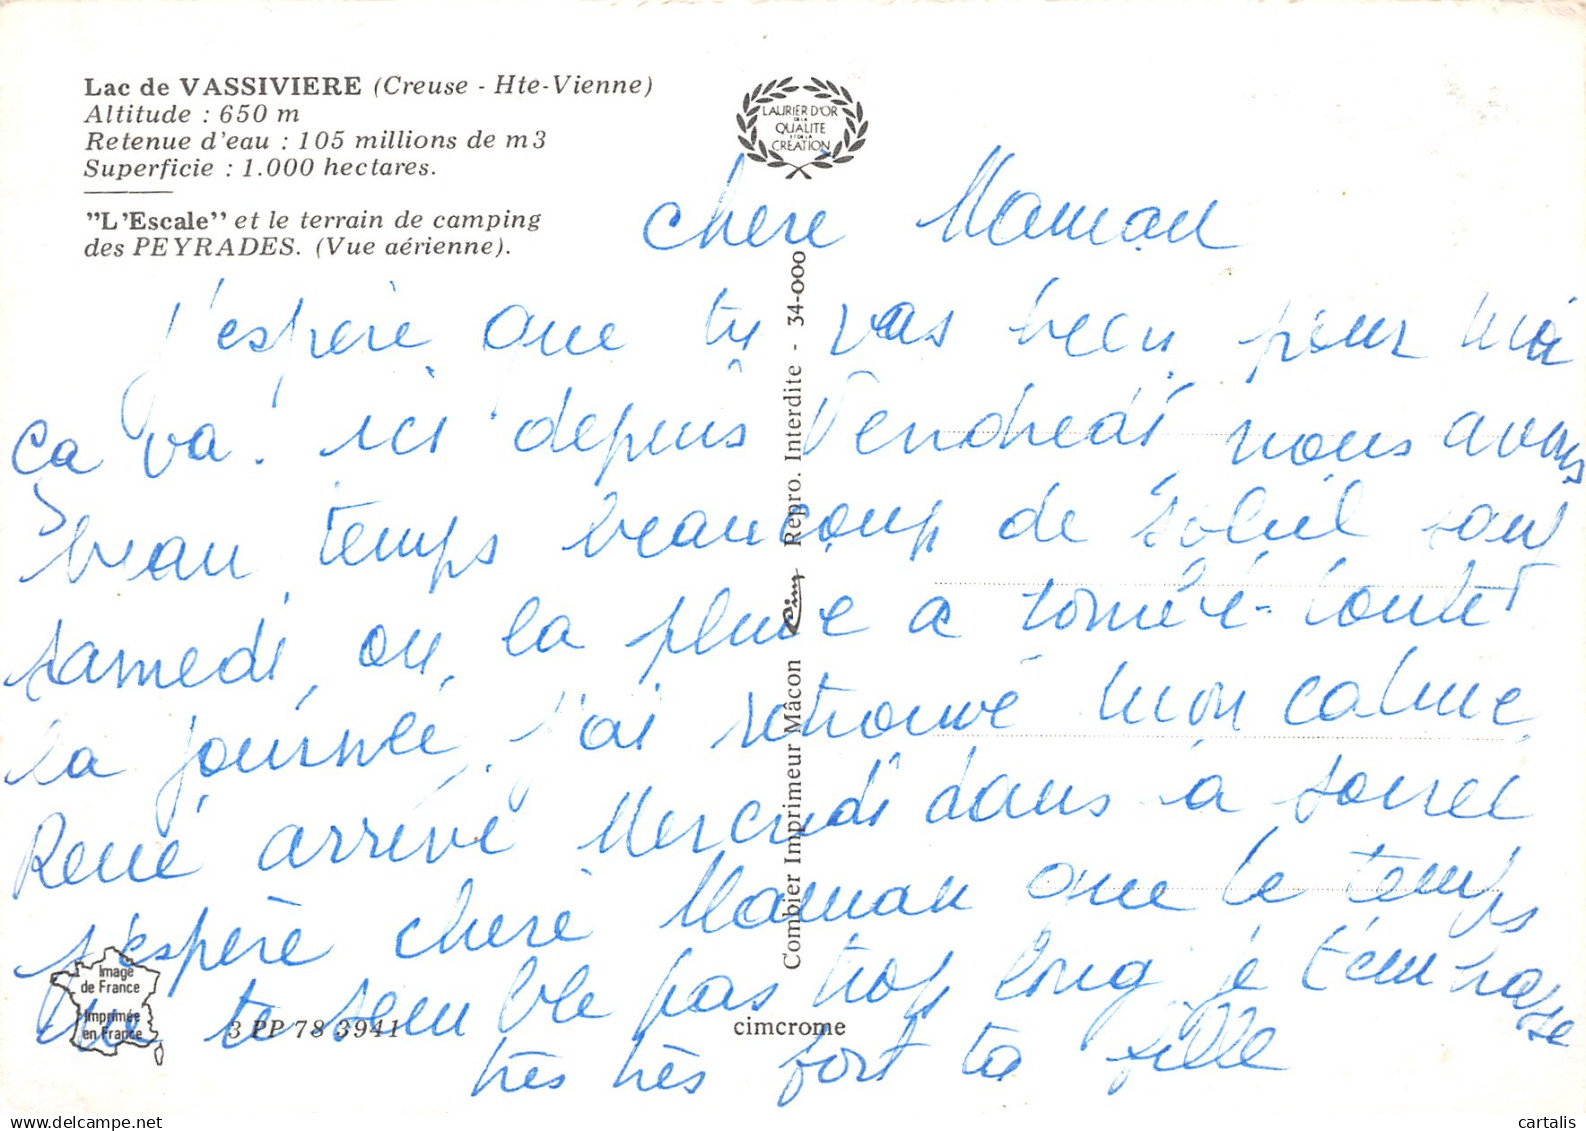 Lac de VASSIVIERE (Creuse - Hte-Vienne)
Altitude : 650 m
Retenue d'eau : 105 millions de m3
Superficie : 1.000 hectares.
"L'Escale" et le terrain de camping
des PEYRADES. (Vue aérienne).
LAURIER D'OR
DE LA
QUALITE
ET DE LA
CREATION
chere Maman
j'espère que tu vas bien, pour moi
ça va. ici depuis Vendredi nous avons
beau temps beaucoup de soleil sauf
samedi ou la pluie a tombé toute
la journée, j'ai retrouvé mon calme
René arrive Mercredi dans la soirée
j'espère chere Maman que le temps
ne te semble pas trop long je t'embrasse
très très fort ta fille
Combier Imprimeur Mâcon Cim Repro. Interdite - 34-000
Image
de France
Imprimée
en France
3 PP 78 3941
cimcrome
cartalis